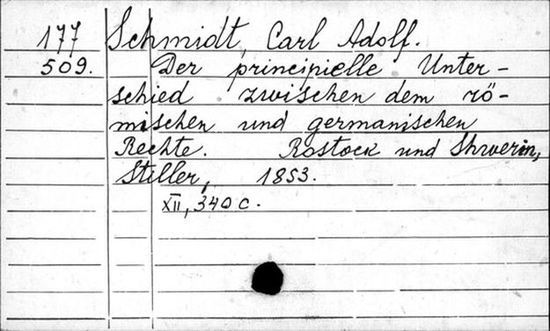 177 Schmidt, Carl Adolf.
509. Der principielle Unter-
schied zwischen dem rö-
mischen und germanischen
Rechte. Rostock und Shwerin,
Stiller, 1853.
XII, 340 c.